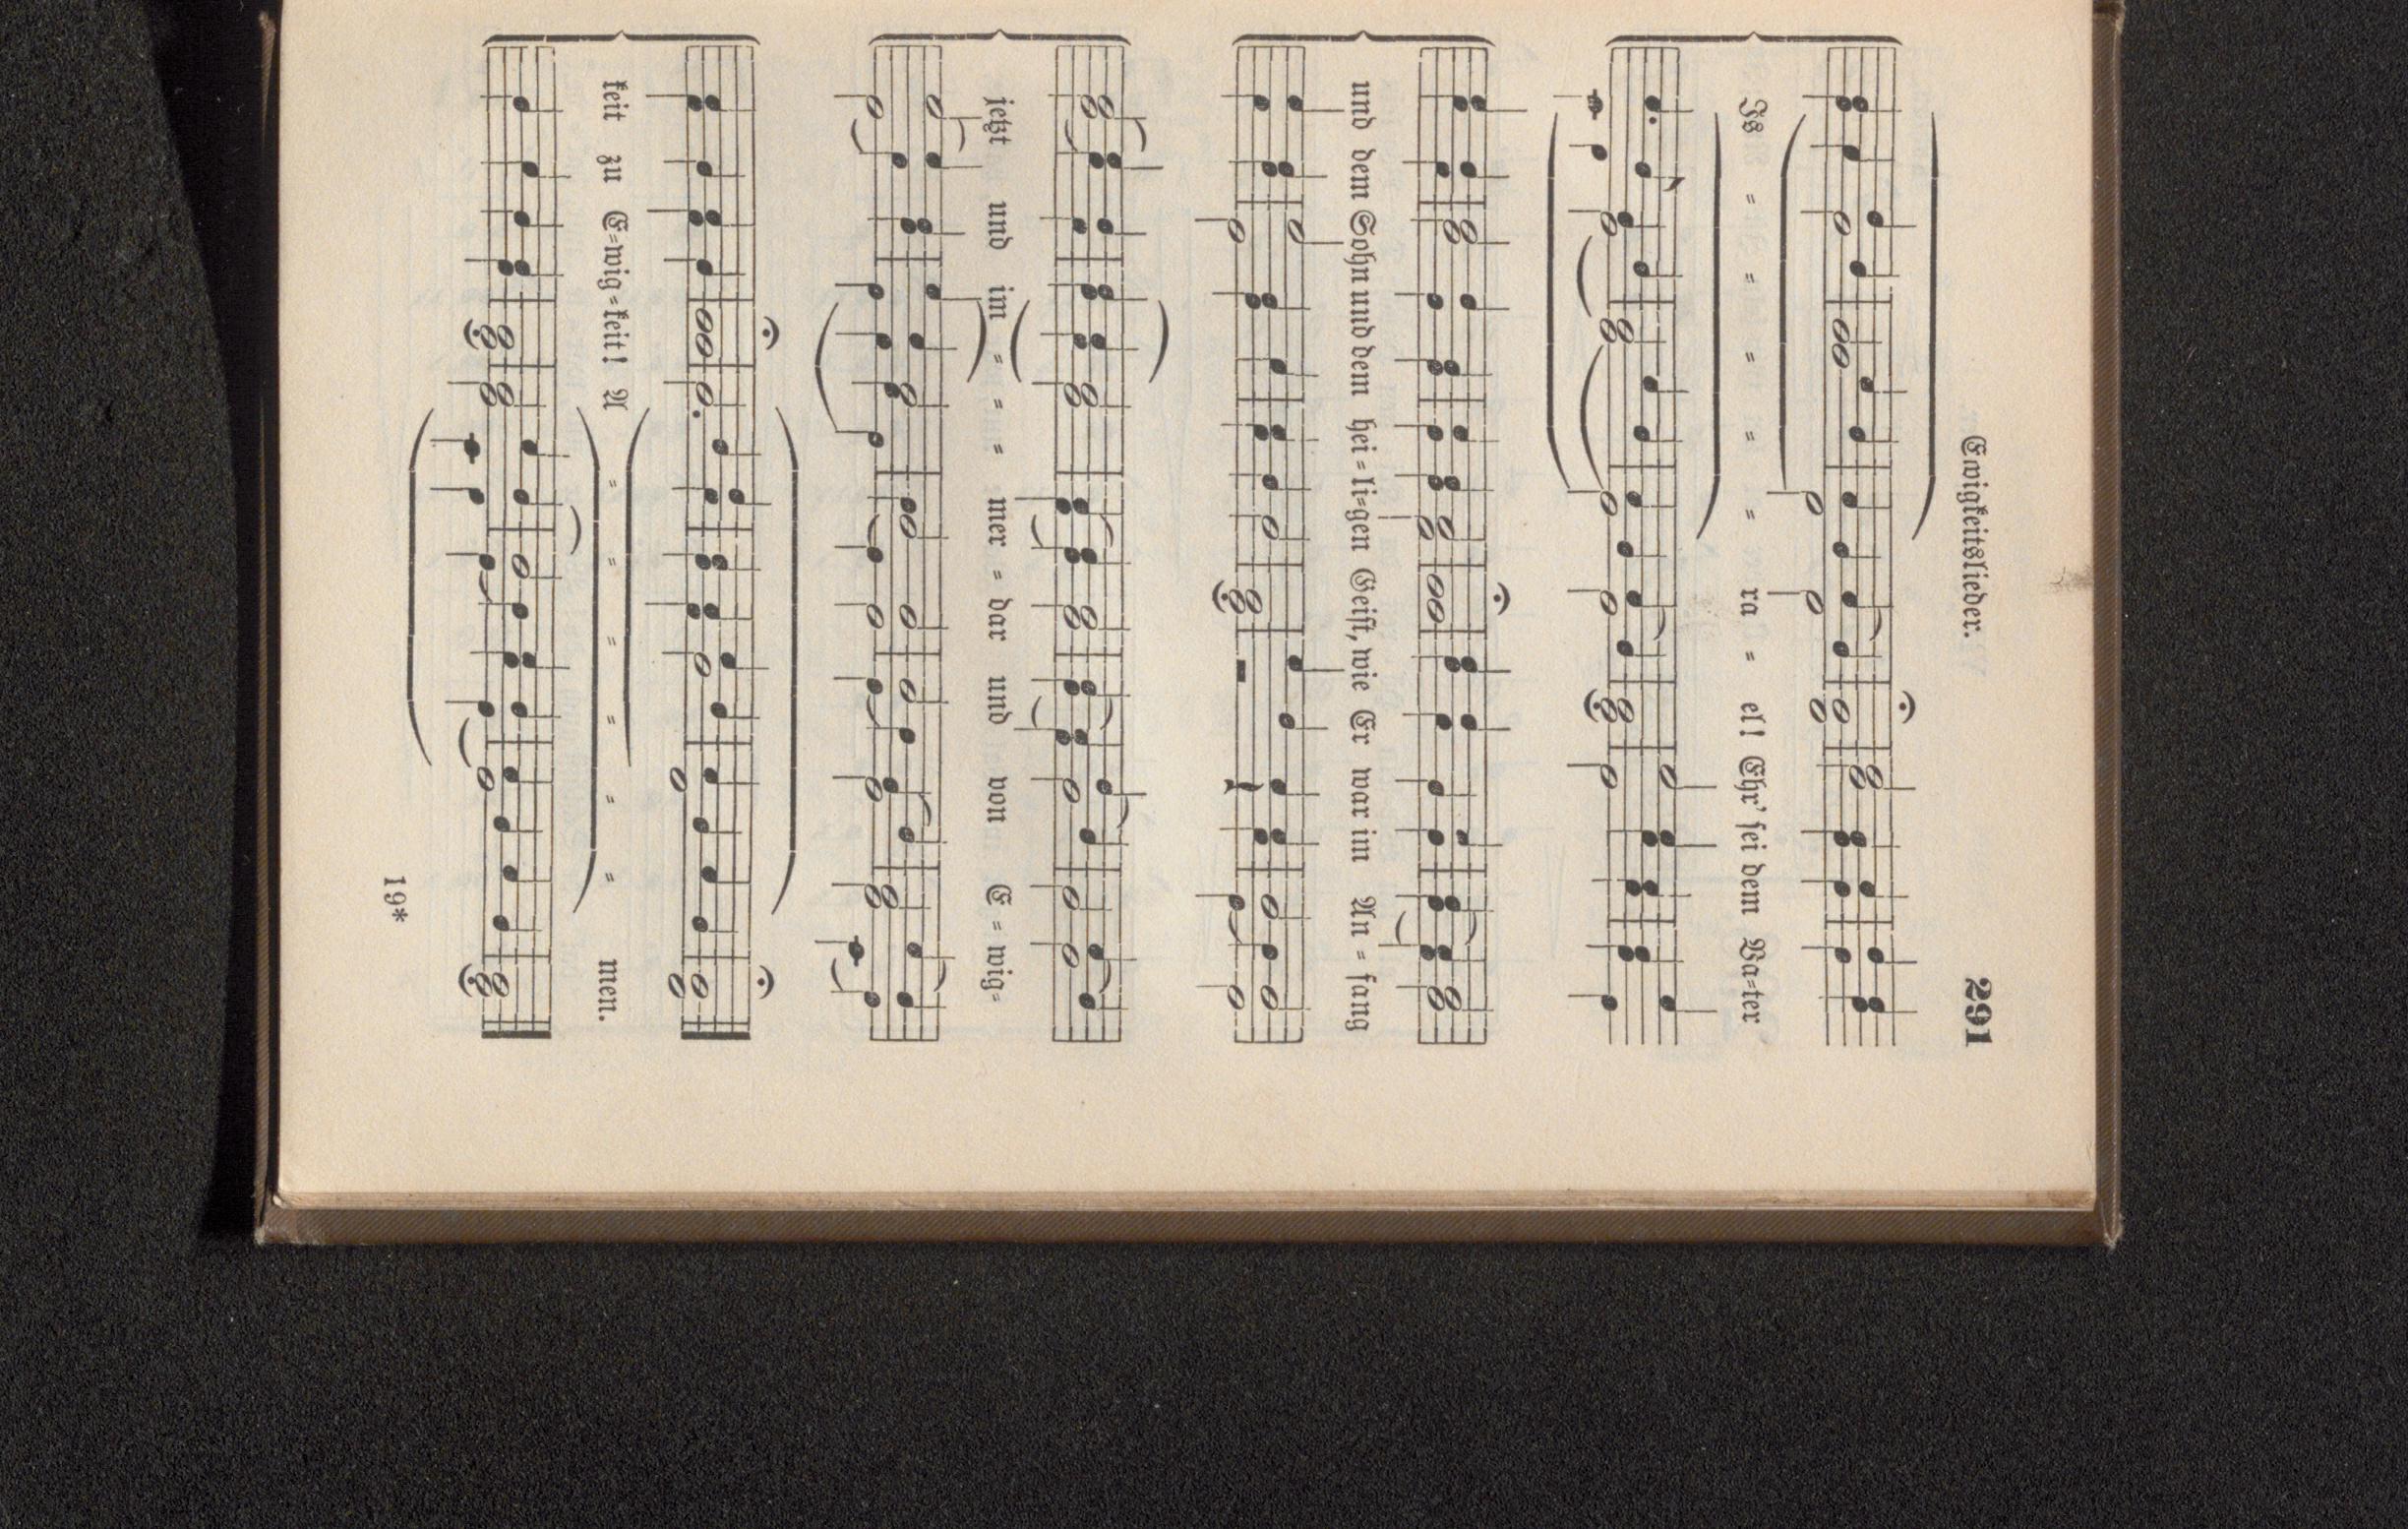 Ewigkeitslieder. 291
Is = = = = = ra = el! Ehr' sei dem Va=ter
und dem Sohn und dem hei=li=gen Geist, wie Er war im An = fang
jetzt und im = = = mer = dar und von E = wig=
keit zu E=wig=keit! A = = = = = = men.
19*